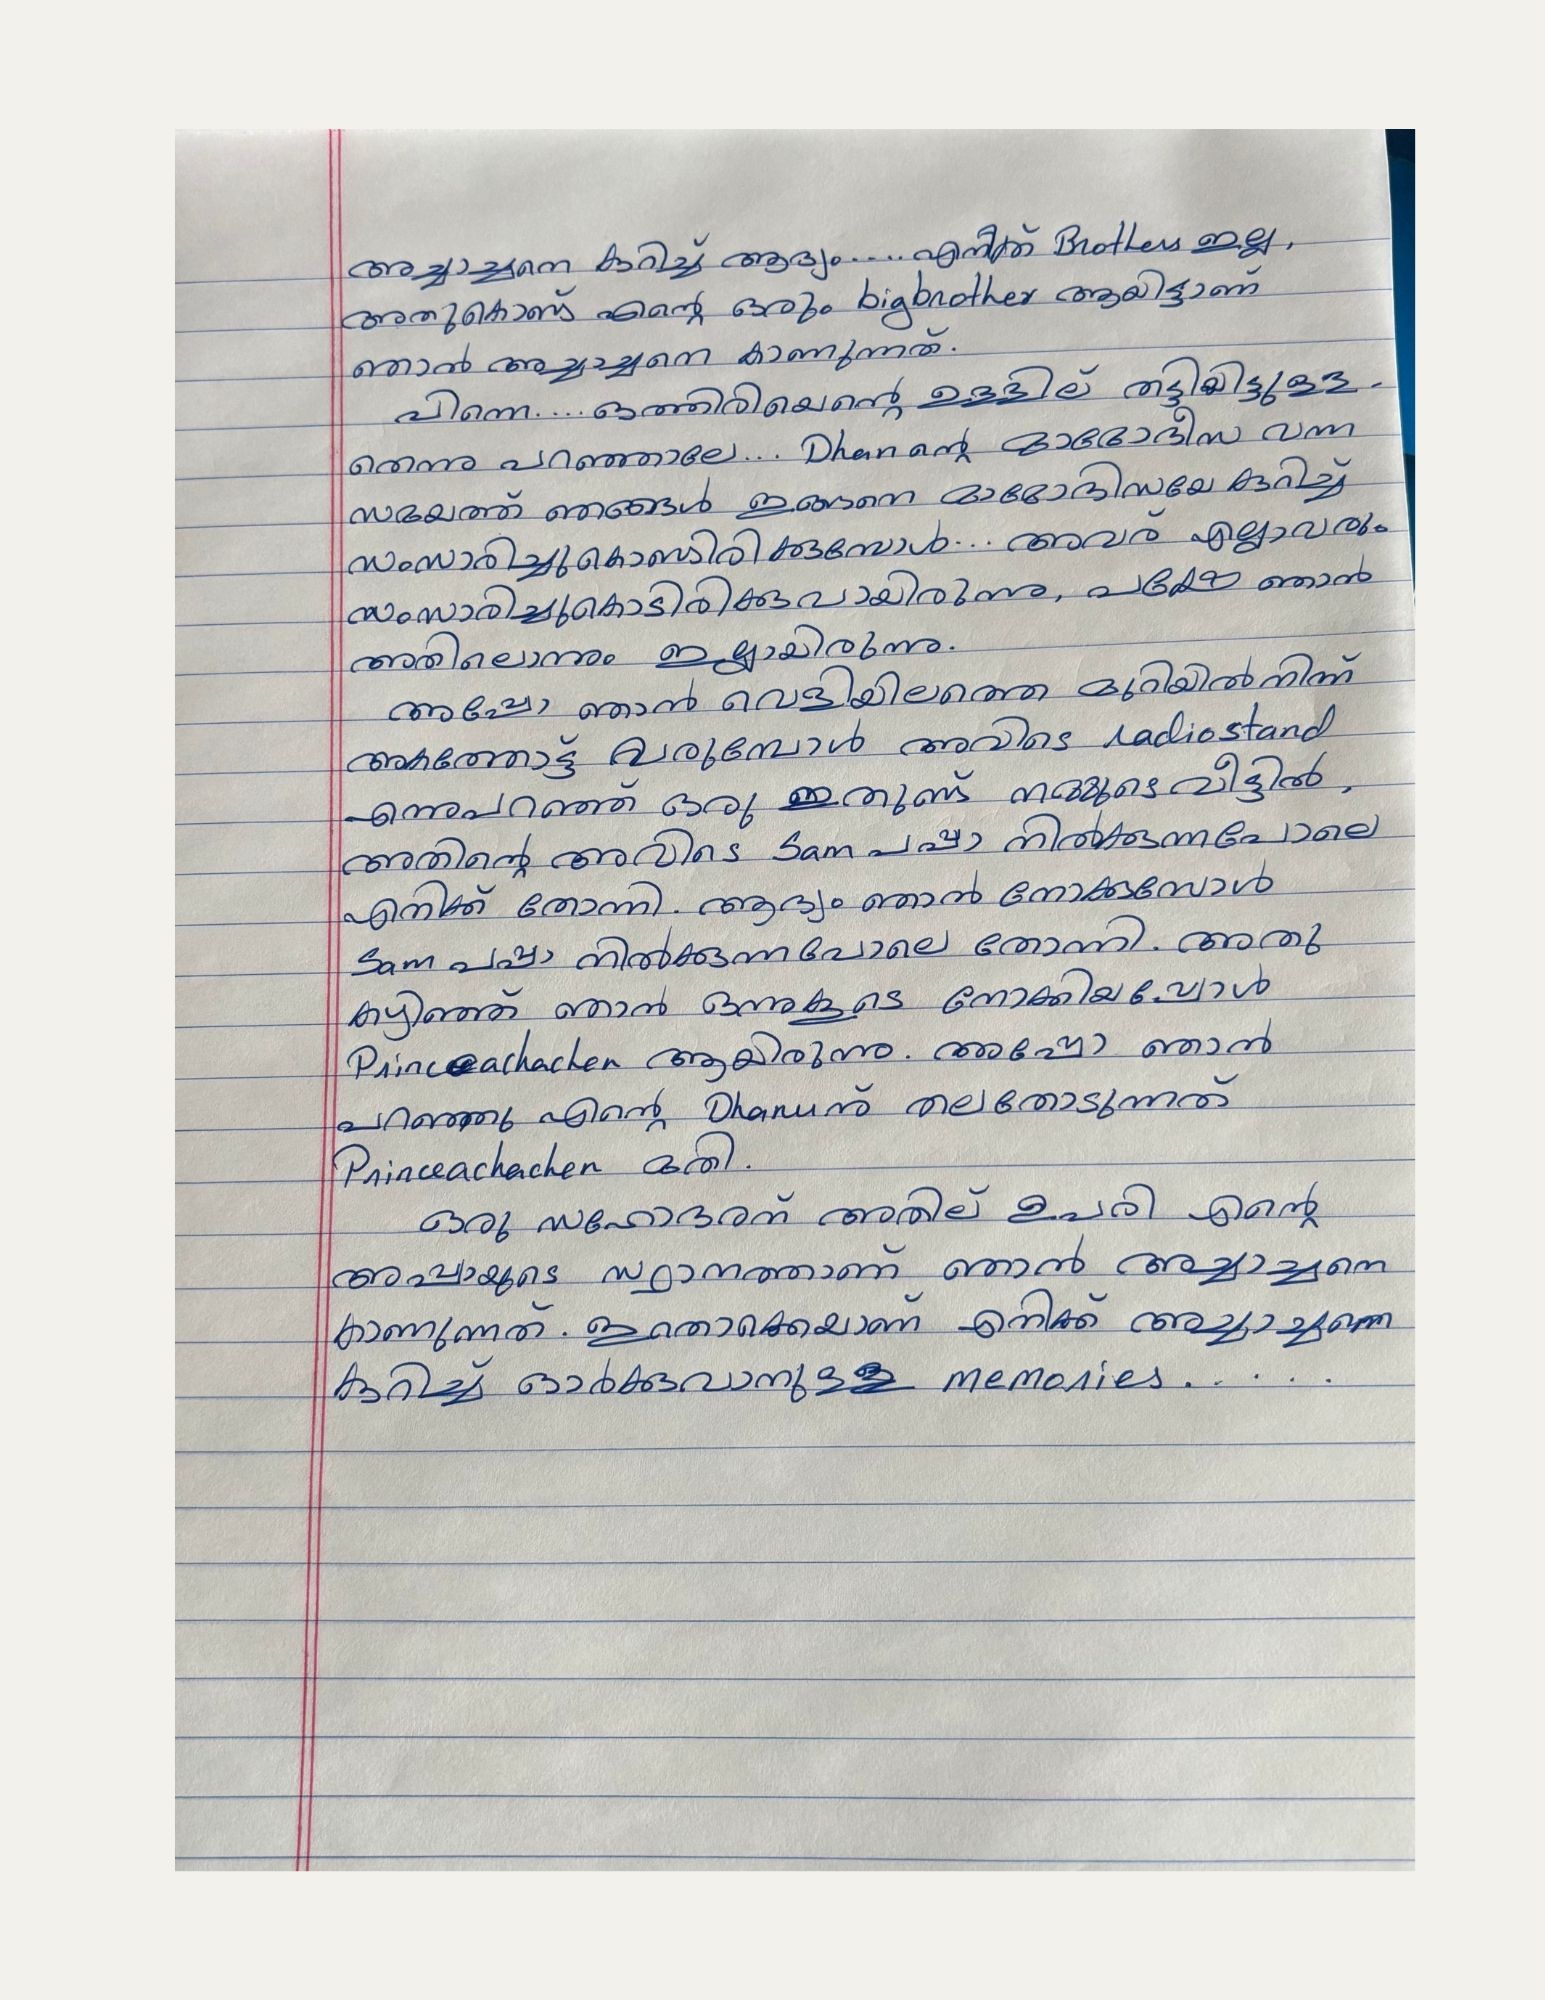 അച്ചാച്ചനെ കുറിച്ച് ആദ്യം.... എനിക്ക് Brothers ഇല്ല,
അതുകൊണ്ട് എന്റെ ഒരും bigbrother ആയിട്ടാണ്
ഞാൻ അച്ചാച്ചനെ കാണുന്നത്.
പിന്നെ.... ഒത്തിരിയെന്റെ ഉള്ളില് തട്ടിയിട്ടുള്ള -
തെന്നു പറഞ്ഞാലേ... Dhanന്റെ മാമോദീസ വന്ന
സമയത്ത് ഞങ്ങൾ ഇങ്ങനെ മാമോദിസയേ കുറിച്ച്
സംസാരിച്ചുകൊണ്ടിരിക്കുമ്പോൾ... അവര് എല്ലാവരും
സംസാരിച്ചുകൊടിരിക്കുവായിരുന്നു, പക്ഷേ ഞാൻ
അതിലൊന്നും ഇല്ലായിരുന്നു.
അപ്പോ ഞാൻ വെളിയിലത്തെ മുറിയിൽനിന്ന്
അകത്തോട്ട് വരുമ്പോൾ അവിടെ radiostand
എന്നുപറഞ്ഞ് ഒരു ഇതുണ്ട് നമ്മുടെ വീട്ടിൽ,
അതിന്റെ അവിടെ Sam പപ്പാ നിൽക്കുന്നപോലെ
എനിക്ക് തോന്നി. ആദ്യം ഞാൻ നോക്കുമ്പോൾ
Sam പപ്പാ നിൽക്കുന്നപോലെ തോന്നി. അതു
കഴിഞ്ഞ് ഞാൻ ഒന്നുകൂടെ നോക്കിയപ്പോൾ
Princeachachen ആയിരുന്നു. അപ്പോ ഞാൻ
പറഞ്ഞു എന്റെ Dhanuന് തലതോടുന്നത്
Princeachachen മതി.
ഒരു സഹോദരന് അതില് ഉപരി എന്റെ
അപ്പായുടെ സ്ഥാനത്താണ് ഞാൻ അച്ചാച്ചനെ
കാണുന്നത്. ഇതൊക്കെയാണ് എനിക്ക് അച്ചാച്ചനെ
കുറിച്ച് ഓർക്കുവാനുള്ള memories.....